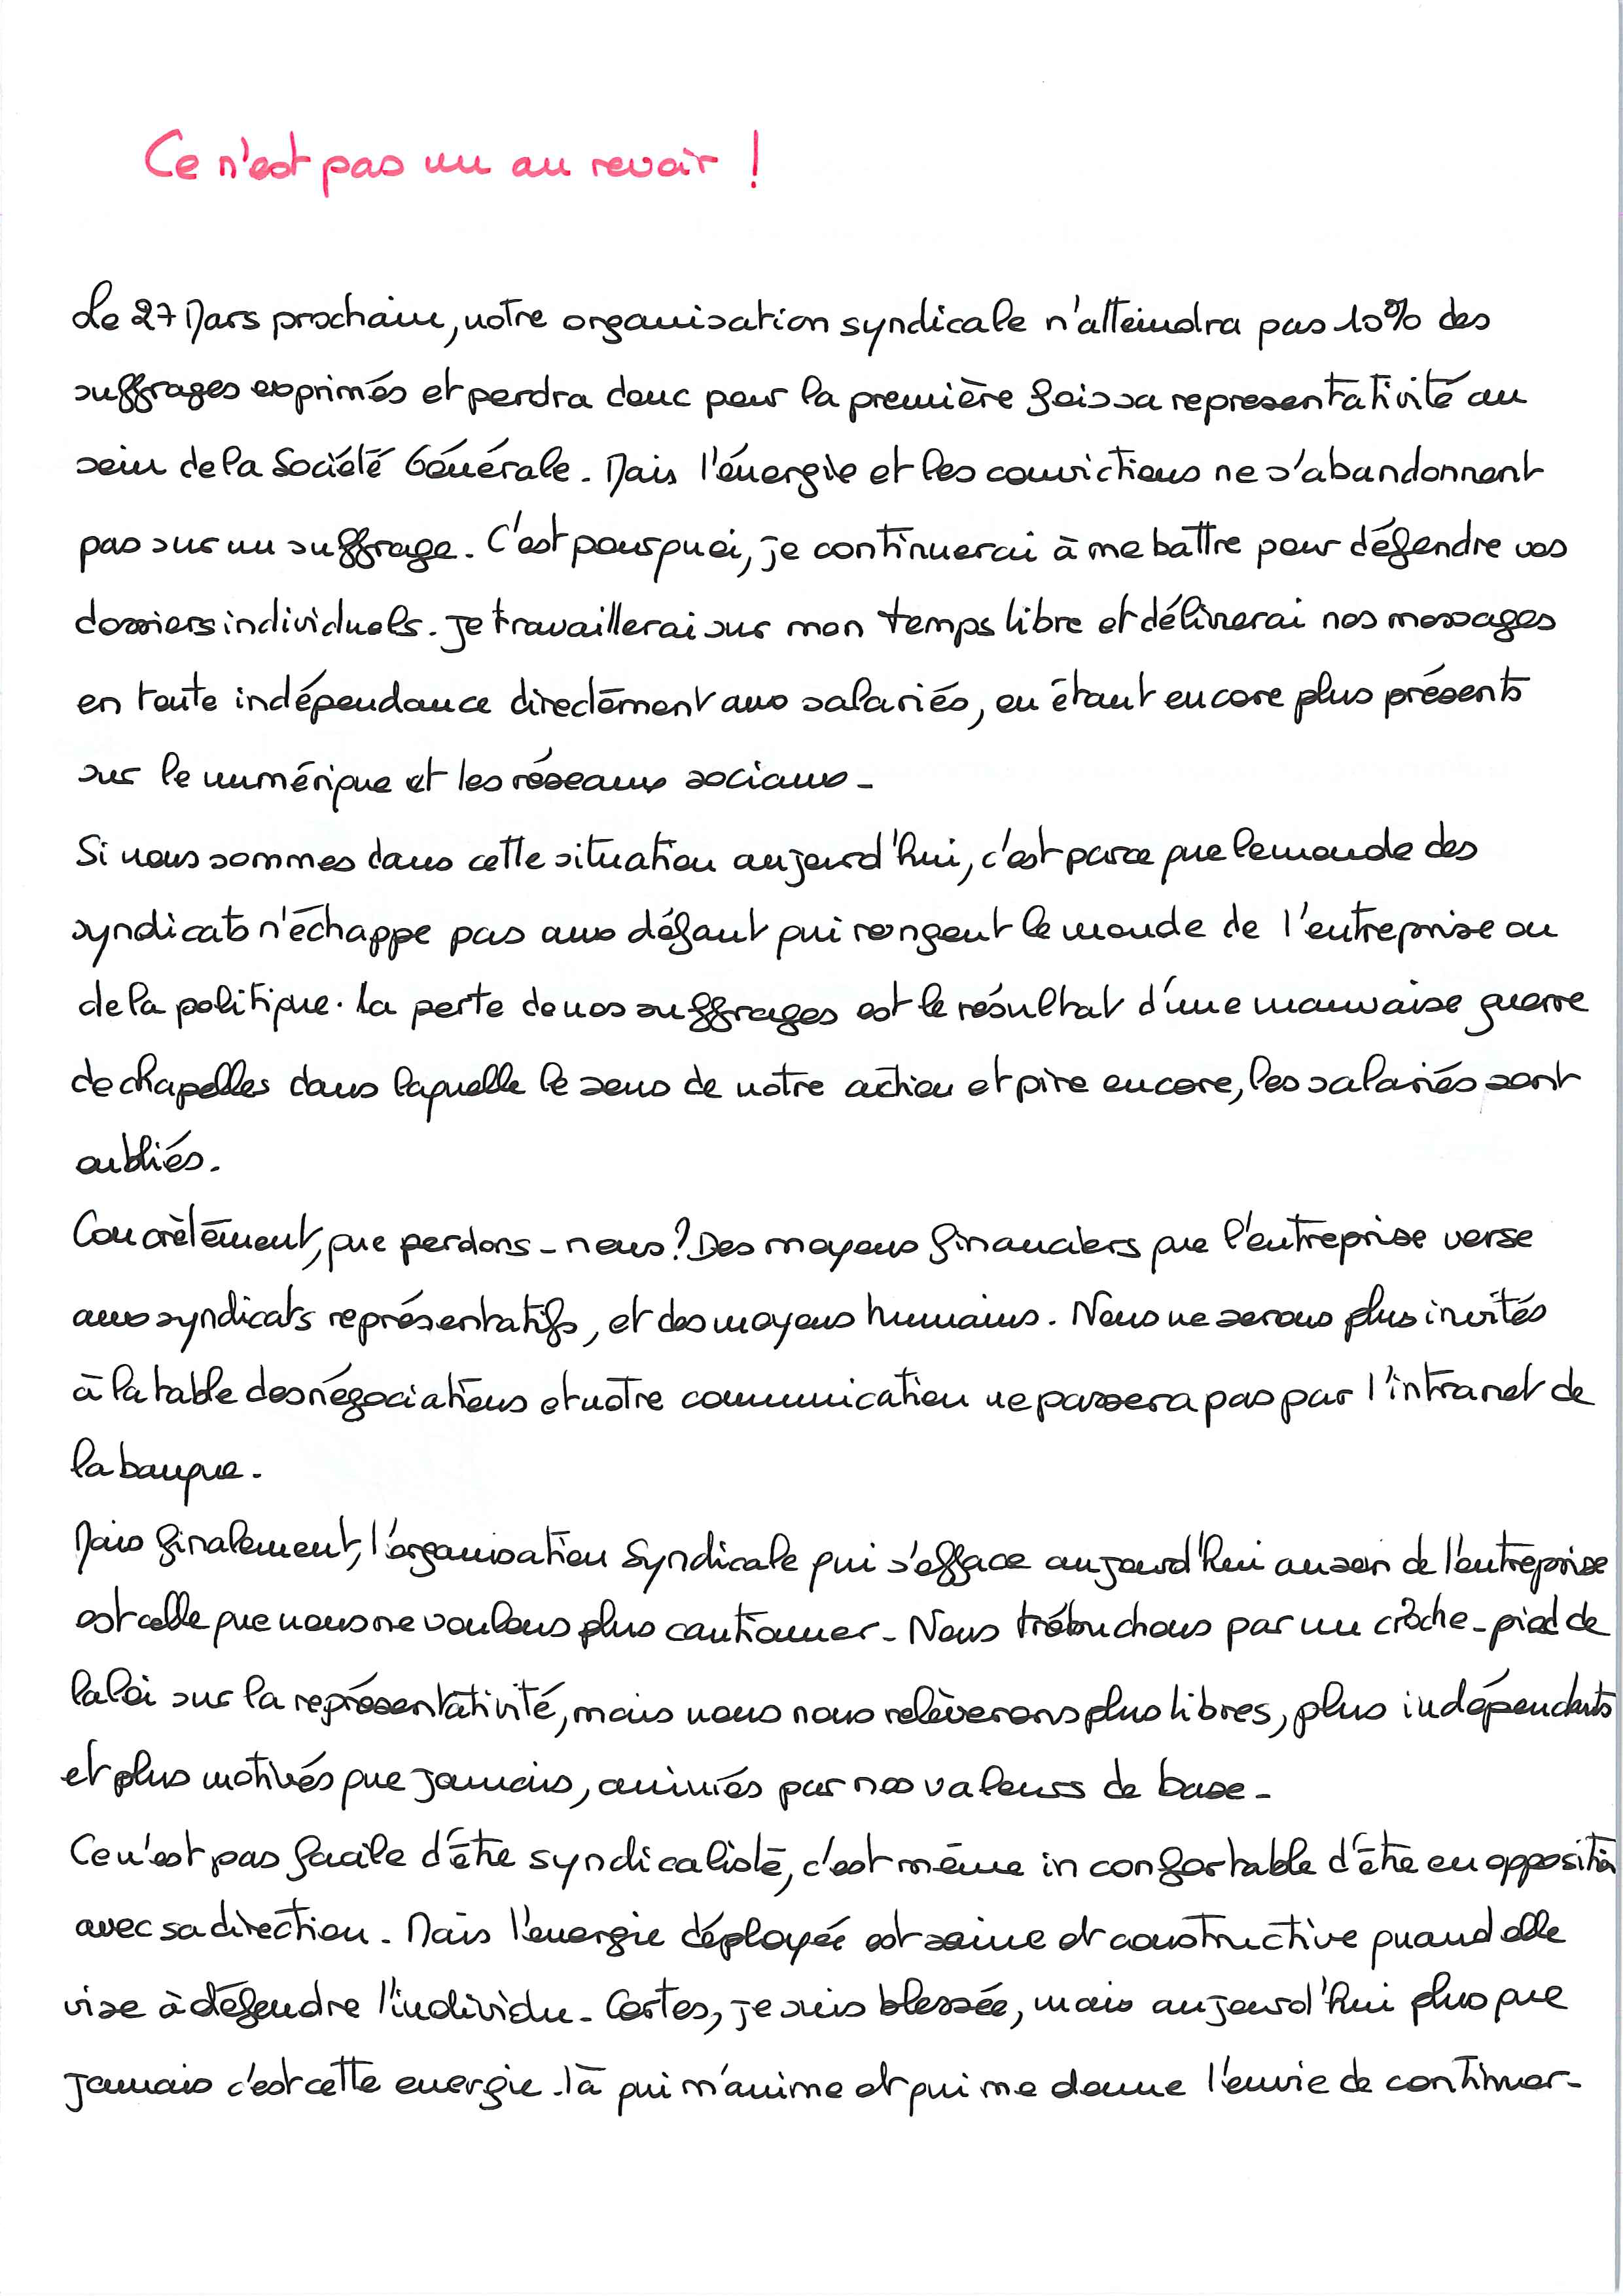 Ce n'est pas un au revoir !
Le 27 Mars prochain, notre organisation syndicale n'atteindra pas 10% des
suffrages exprimés et perdra donc pour la première fois sa representativité au
sein de la Société Générale. Mais l'énergie et les convictions ne s'abandonnent
pas sur un suffrage. C'est pourquoi, je continuerai à me battre pour défendre vos
dossiers individuels. Je travaillerai sur mon temps libre et délivrerai nos messages
en toute indépendance directement aux salariés, en étant encore plus présents
sur le numérique et les réseaux sociaux.
Si nous sommes dans cette situation aujourd'hui, c'est parce que le monde des
syndicats n'échappe pas aux défaut qui rongent le monde de l'entreprise ou
de la politique. La perte de nos suffrages est le résultat d'une mauvaise guerre
de chapelles dans laquelle le sens de notre action et pire encore, les salariés sont
oubliés.
Concrètement, que perdons-nous ? Des moyens financiers que l'entreprise verse
aux syndicats représentatifs, et des moyens humains. Nous ne serons plus invités
à la table des négociations et notre communication ne passera pas par l'intranet de
la banque.
Mais finalement, l'organisation Syndicale qui s'efface aujourd'hui au sein de l'entreprise
est celle que nous ne voulons plus cautionner. Nous trébuchons par un croche-pied de
la loi sur la représentativité, mais nous nous relèverons plus libres, plus indépendants
et plus motivés que jamais, animés par nos valeurs de base.
Ce n'est pas facile d'être syndicaliste, c'est même inconfortable d'être en opposition
avec sa direction. Mais l'energie déployée est saine et constructive quand elle
vise à défendre l'individu. Certes, je suis blessée, mais aujourd'hui plus que
jamais c'est cette energie-là qui m'anime et qui me donne l'envie de continuer.